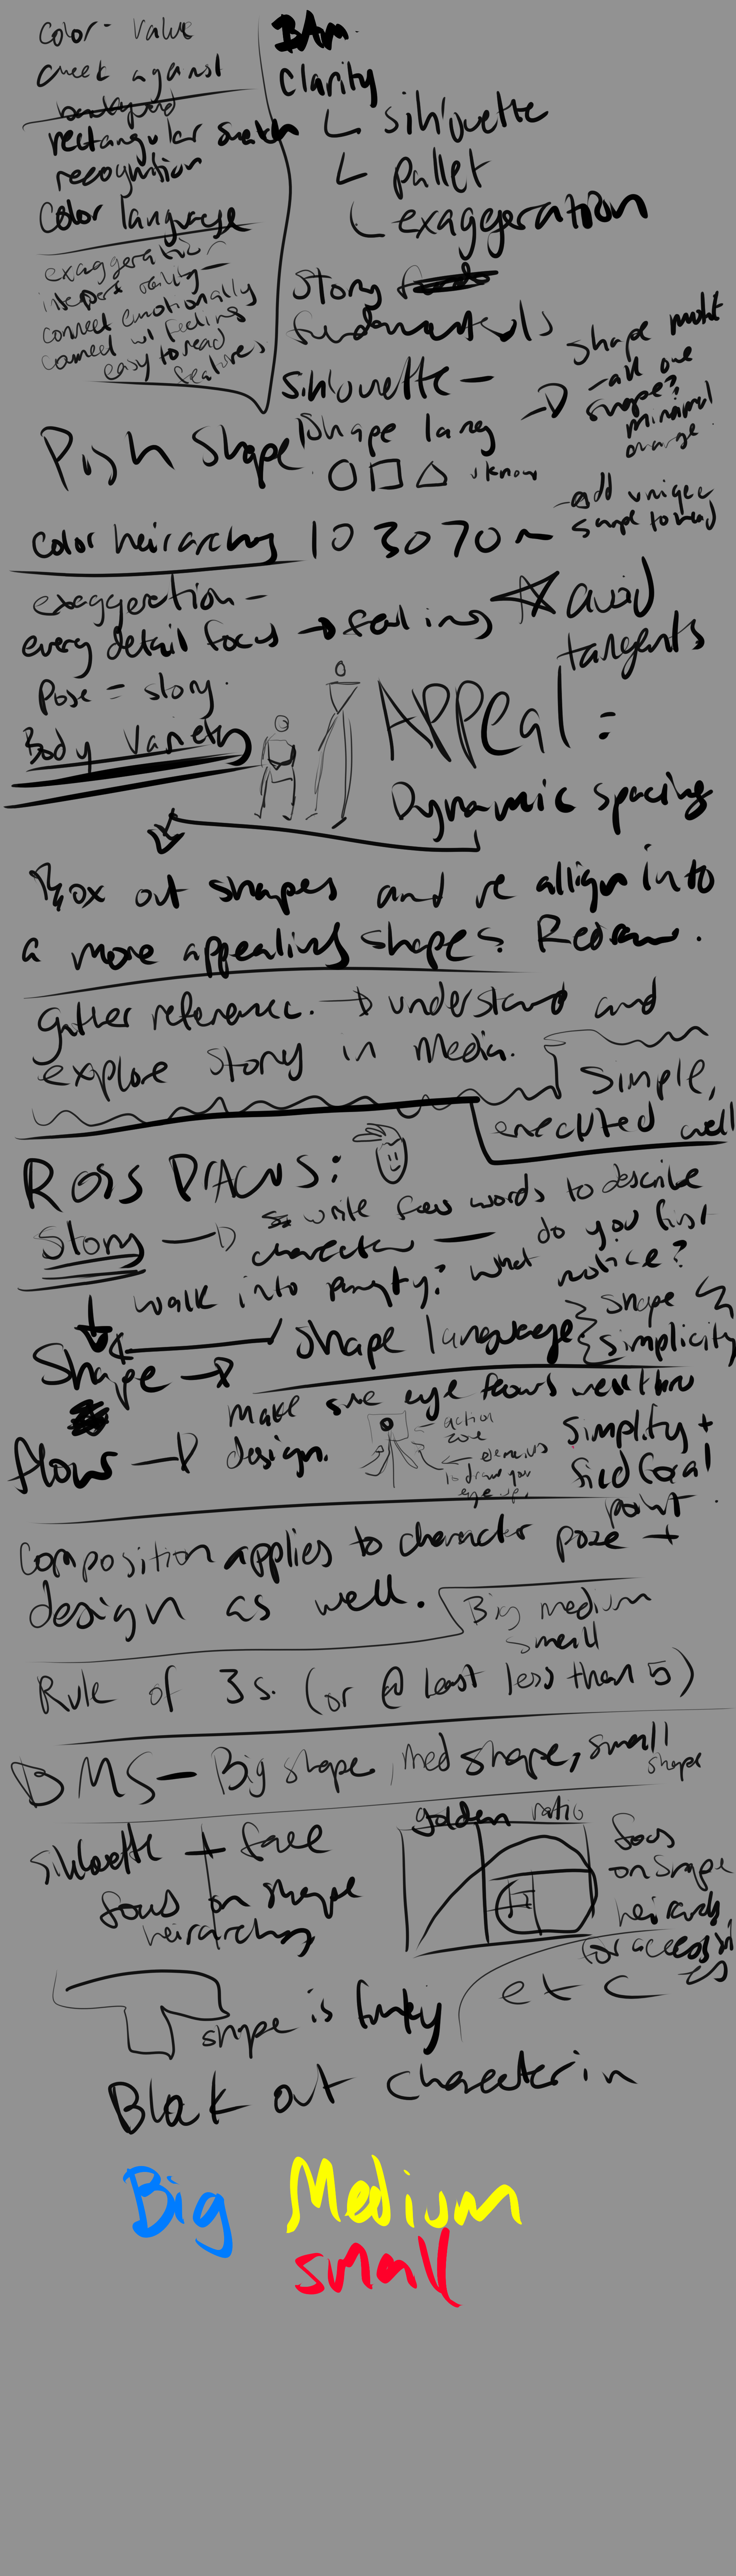 Color - Value
check against
rectangular swatch
recognition
Color language
exaggeration
interpret reality -
connect emotionally
connect w/ feeling
easy to read
features
BAM.
Clarity
silhouette
pallet
exaggeration
Story
fundamentals
silhouette -
shape
- all one
shape?
minimal
Push Shape
Shape lang
u know
- add unique
shape to read
Color heirarchy 10 30 70
exaggeration -
every detail focus → feeling
avoid
tangents
Pose = story.
Body Variety
APPeal =
Dynamic spacing
Box out shapes and re allign into
a more appealing shapes. Redraw.
gather reference. → understand and
explore story in media.
Simple,
executed well
ROSS DRAWS:
Story → write few words to describe
character — do you first
walk into party? what notice?
Shape → shape language
shape
simplicity
flow → make sure eye flows well thru
design.
action
zone
elements
to draw your
eye up.
simplify +
find focal
point.
Composition applies to character pose +
design as well.
Big medium
small
Rule of 3s. (or @ least less than 5)
BMS - Big shape, med shape, small
shape
silhouette + face
focus on shape
heirarchy
golden ratio
focus
on shape
heirarchy
for accessories
etc
shape is funky
Block out character in
Big Medium
small